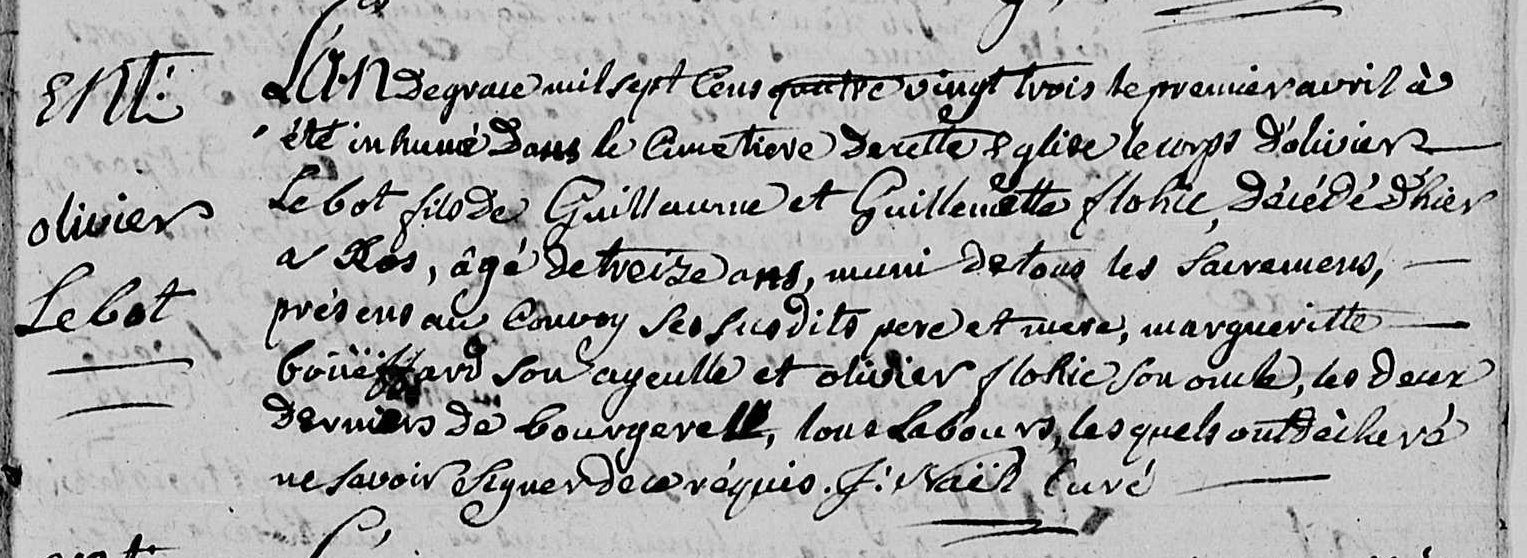 Enti
olivier
Lebot
L'An de grace mil sept Cens quatre vingt trois le premier avril à
été inhumé Dans le Cimetiere De cette Eglise le corps D'olivier
Lebot fils de Guillaume et Guillemette flohic, Décédé D'hier
a Ros, âgé de treize ans, muni de tous les Sacremens,
présens au Convoy Ses Susdits pere et mere, margueritte
boüëffard Son ayeulle et olivier flohic Son oncle, les Deux
Derniers de bourgerell, tous Labours, les quels ont Déclaré
ne savoir Signer de ce réquis. J: Naël Curé